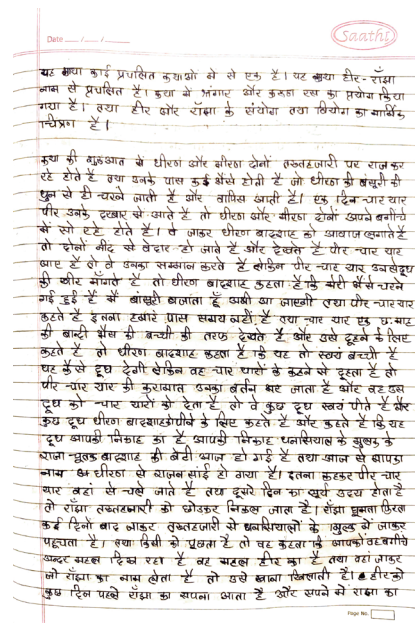 Date ...../...../.......
Saathi
यह गाथा कई प्रचलित कथाओं में से एक है। यह गाथा हीर-रांझा
नाम से प्रचलित है। कथा में श्रृंगार और करुण रस का प्रयोग किया
गया है। तथा हीर और रांझा के संयोग तथा वियोग का मार्मिक
चित्रण है।
कथा की शुरुआत में धीरण और मीरण दोनों तख्तहजारी पर राज कर
रहे होते हैं तथा उनके पास कई भैंसे होती हैं जो धीरण की बंसूरी की
धुन से ही चरने जाती हैं और वापिस आती हैं। एक दिन चार यार
पीर उनके दरबार में आते हैं तो धीरण और मीरण दोनों अपने बगीचे
में सो रहे होते हैं। वे जाकर धीरण बादशाह को आवाज लगाते हैं
तो दोनों नींद से बेदार हो जाते हैं और देखते हैं पीर चार यार
आए हैं तो वे उनका सम्मान करते हैं लेकिन पीर चार यार उनसे दूध
की खीर मांगते हैं तो धीरण बादशाह कहता है कि मेरी भैंसे चरने
गई हुई हैं मैं बांसूरी बजाता हूँ अभी आ जाएगी तथा पीर चार यार
कहते हैं इतना हमारे पास समय नहीं है तथा चार यार एक छ: माह
की बान्दी भैंस की बच्ची की तरफ देखते हैं और उसे दूहने के लिए
कहते हैं तो धीरण बादशाह कहता है कि यह तो स्वयं बच्ची है
यह कैसे दूध देगी लेकिन वह चार यारों के कहने से दूहता है तो
पीर चार यार की करामात उनका बर्तन भर जाता है और वह उस
दूध को चार यारों को देता है तो वे कुछ दूध स्वयं पीते हैं और
कुछ दूध धीरण बादशाह को पीने के लिए कहते हैं और कहते हैं कि यह
दूध आपकी निकाह का है आपकी निकाह धनसियाल के मुल्क के
राजा चूचक बादशाह की बेटी आज हो गई है तथा आज से आपका
नाम धीरण से रांझन साई हो गया है। इतना कहकर पीर चार
यार वहां से चले जाते हैं तथा दूसरे दिन का सूर्य उदय होता है
तो रांझा तख्तहजारी को छोड़कर निकल जाता है। रांझा घूमता फिरता
कई दिनों बाद जाकर तख्तहजारी से धनसियालों के मुल्क में जाकर
पहुंचता है। तथा किसी को पूछता है तो वह कहता कि आपको वह बगीचे
अन्दर महल दिख रहा है वह महल हीर का है तथा वहां जाकर
जो रांझा का नाम लेता है तो उसे खाना खिलाती है। हीर को
कुछ दिन पहले रांझा का सपना आता है और सपने में रांझा का
Page No.